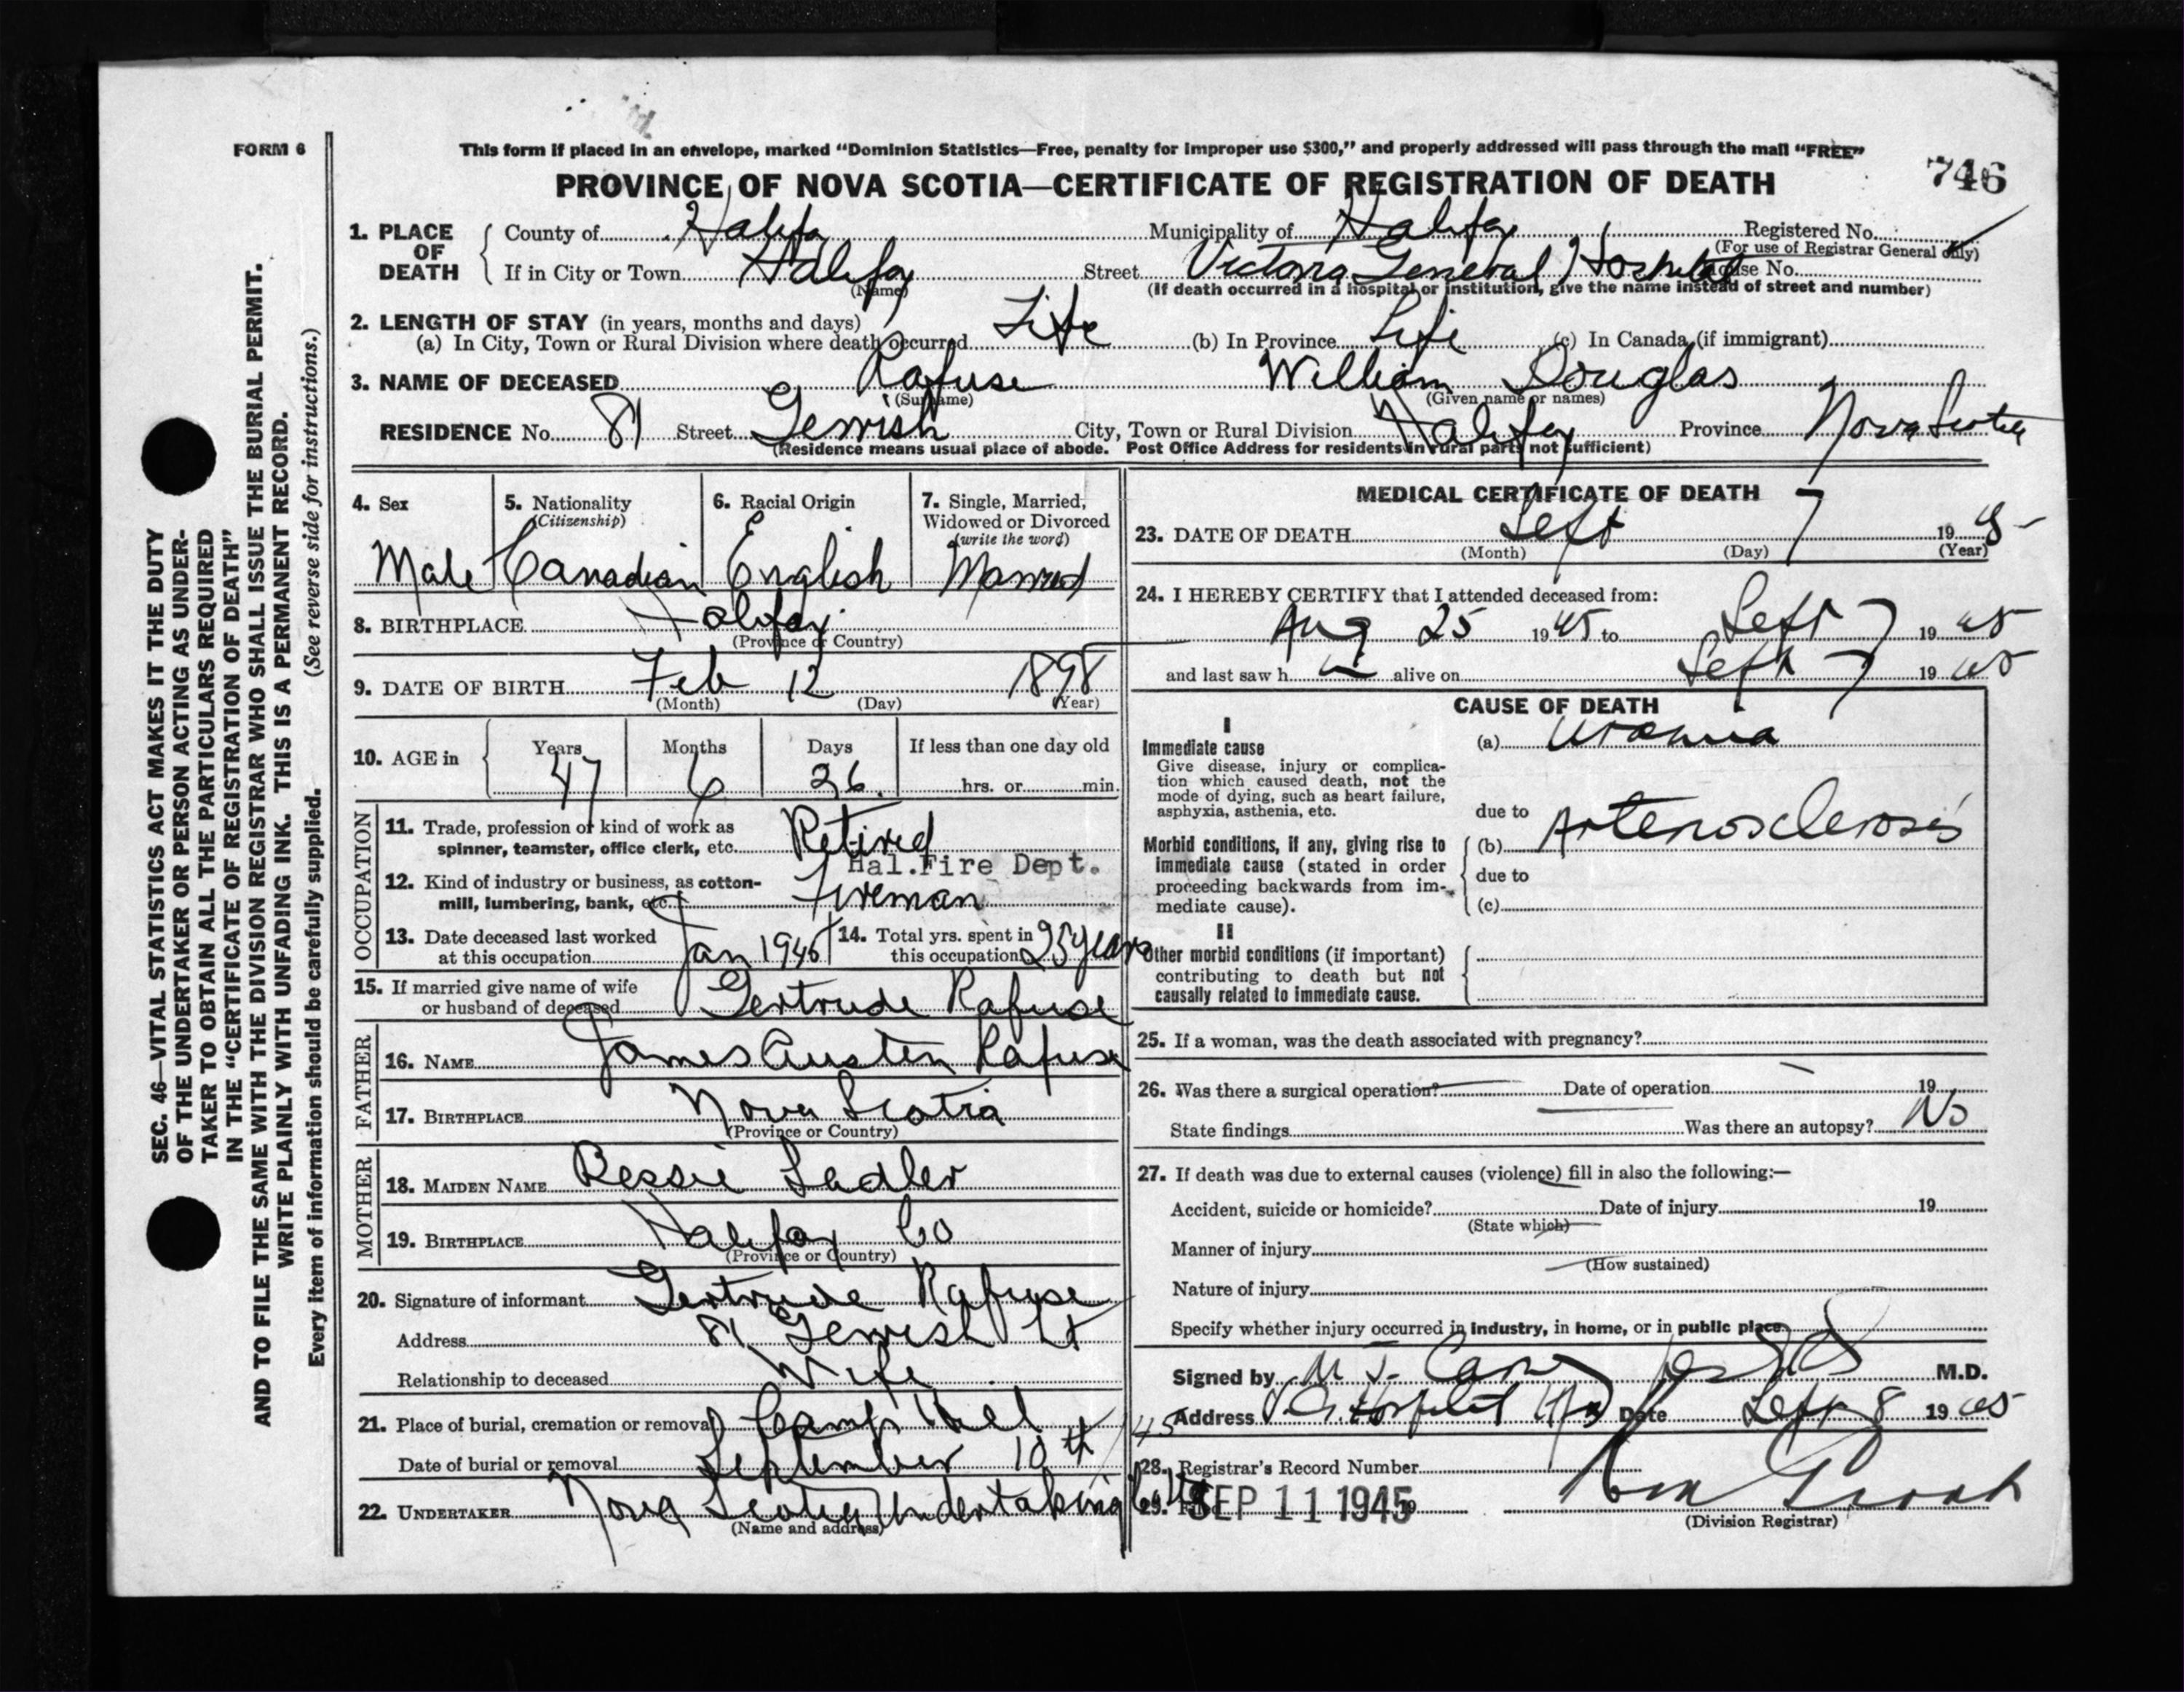 FORM 6
This form if placed in an envelope, marked “Dominion Statistics—Free, penalty for improper use $300,” and properly addressed will pass through the mail “FREE”
PROVINCE OF NOVA SCOTIA—CERTIFICATE OF REGISTRATION OF DEATH
746
1. PLACE OF DEATH
County of Halifax Municipality of Halifax Registered No.
(For use of Registrar General only)
If in City or Town Halifax Street Victoria General Hospital House No.
(Name) (If death occurred in a hospital or institution, give the name instead of street and number)
2. LENGTH OF STAY (in years, months and days)
(a) In City, Town or Rural Division where death occurred Life (b) In Province Life (c) In Canada (if immigrant)
3. NAME OF DECEASED Rafuse William Douglas
(Surname) (Given name or names)
RESIDENCE No. 81 Street Gerrish City, Town or Rural Division Halifax Province Nova Scotia
(Residence means usual place of abode. Post Office Address for residents in rural parts not sufficient)
4. Sex
Male
5. Nationality
(Citizenship)
Canadian
6. Racial Origin
English
7. Single, Married, Widowed or Divorced
(write the word)
Married
8. BIRTHPLACE Halifax
(Province or Country)
9. DATE OF BIRTH Feb 12 1898
(Month) (Day) (Year)
10. AGE in
Years Months Days If less than one day old
47 6 26 hrs. or min.
OCCUPATION
11. Trade, profession or kind of work as
spinner, teamster, office clerk, etc. Retired
Hal.Fire Dept.
12. Kind of industry or business, as cotton-
mill, lumbering, bank, etc. Fireman
13. Date deceased last worked
at this occupation Jan 1945
14. Total yrs. spent in
this occupation 25 years
15. If married give name of wife
or husband of deceased Gertrude Rafuse
FATHER
16. NAME James Austen Rafuse
17. BIRTHPLACE Nova Scotia
(Province or Country)
MOTHER
18. MAIDEN NAME Bessie Sadler
19. BIRTHPLACE Halifax Co
(Province or Country)
20. Signature of informant Gertrude Rafuse
Address 81 Gerrish St
Relationship to deceased Wife
21. Place of burial, cremation or removal Camp Hill
Date of burial or removal September 10th /45
22. UNDERTAKER Nova Scotia Undertaking Co
(Name and address)
MEDICAL CERTIFICATE OF DEATH
23. DATE OF DEATH Sept 7 1945
(Month) (Day) (Year)
24. I HEREBY CERTIFY that I attended deceased from:
Aug 25 1945 to Sept 7 1945
and last saw h alive on Sept 7 1945
CAUSE OF DEATH
I
Immediate cause
Give disease, injury or complica-
tion which caused death, not the
mode of dying, such as heart failure,
asphyxia, asthenia, etc.
(a) Uraemia
due to
Morbid conditions, if any, giving rise to
immediate cause (stated in order
proceeding backwards from im-
mediate cause).
(b) Arteriosclerosis
due to
(c)
II
Other morbid conditions (if important)
contributing to death but not
causally related to immediate cause.
25. If a woman, was the death associated with pregnancy?
26. Was there a surgical operation? Date of operation 19
State findings Was there an autopsy? No
27. If death was due to external causes (violence) fill in also the following:—
Accident, suicide or homicide? Date of injury 19
(State which)
Manner of injury
(How sustained)
Nature of injury
Specify whether injury occurred in industry, in home, or in public place
Signed by M. J. M.D.
Address V. G. Hospital Hfx Date Sept 8 1945
28. Registrar's Record Number
29. SEP 11 1945 19
(Division Registrar)
SEC. 46—VITAL STATISTICS ACT MAKES IT THE DUTY
OF THE UNDERTAKER OR PERSON ACTING AS UNDER-
TAKER TO OBTAIN ALL THE PARTICULARS REQUIRED
IN THE “CERTIFICATE OF REGISTRATION OF DEATH”
AND TO FILE THE SAME WITH THE DIVISION REGISTRAR WHO SHALL ISSUE THE BURIAL PERMIT.
WRITE PLAINLY WITH UNFADING INK. THIS IS A PERMANENT RECORD.
Every item of information should be carefully supplied. (See reverse side for instructions.)